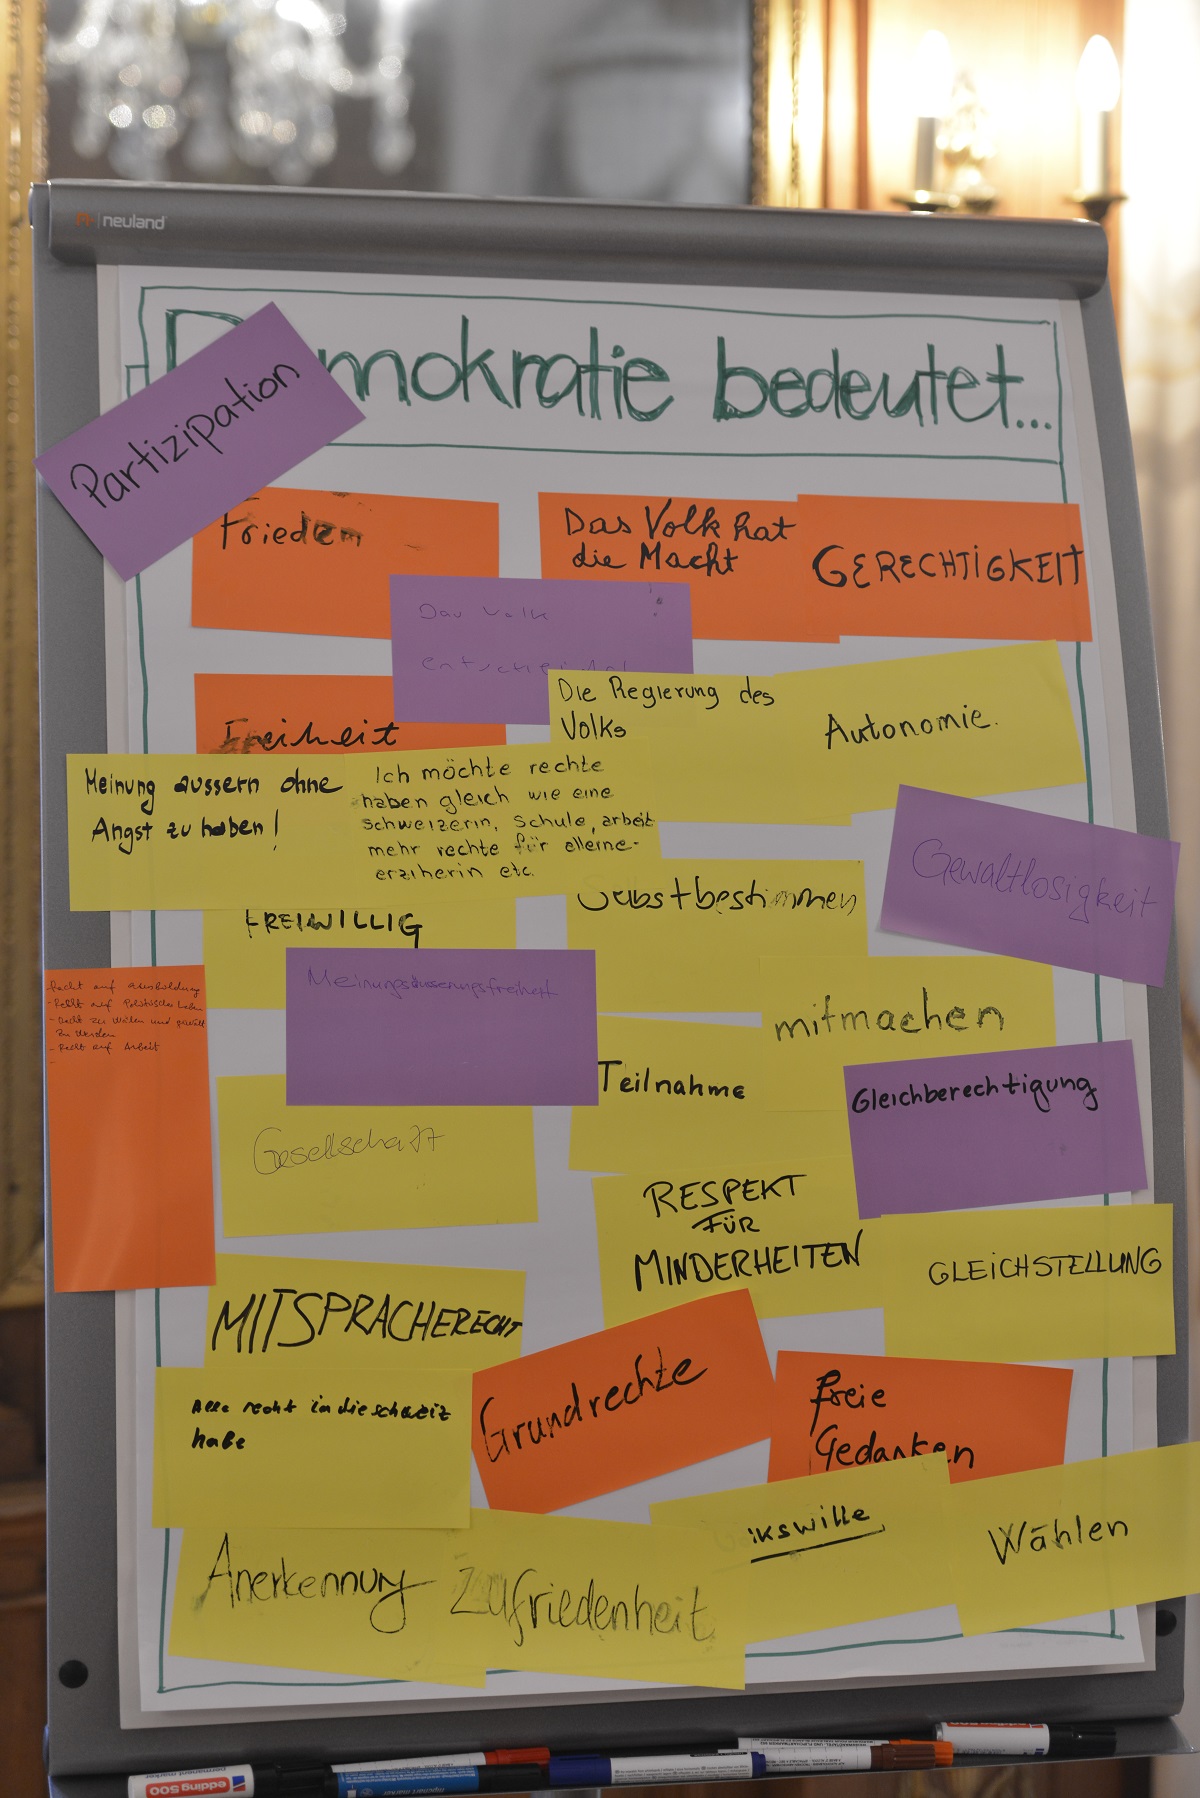 neuland
Demokratie bedeutet...
Partizipation
Frieden
Das Volk hat
die Macht
GERECHTIGKEIT
Das Volk
entscheidet
!
Freiheit
Die Regierung des
Volks
Autonomie.
Meinung äussern ohne
Angst zu haben!
Ich möchte rechte
haben gleich wie eine
schweizerin, schule, arbeit
mehr rechte für alleine-
erziherin etc.
Gewaltlosigkeit
Selbstbestimmen
FREIWILLIG
Meinungsäusserungsfreiheit
mitmachen
Recht auf ausbildung
- Recht auf Politisches Leben
- Recht zu Wälen und gewält
zu werden
- Recht auf Arbeit
Teilnahme
Gleichberechtigung
Gesellschaft
RESPEKT
FÜR
MINDERHEITEN
GLEICHSTELLUNG
MITSPRACHERECHT
Grundrechte
freie
Gedanken
Alle recht in die schweiz
habe
Volkswille
Wählen
Anerkennung
Zufriedenheit
edding 500
permanent marker
edding 500